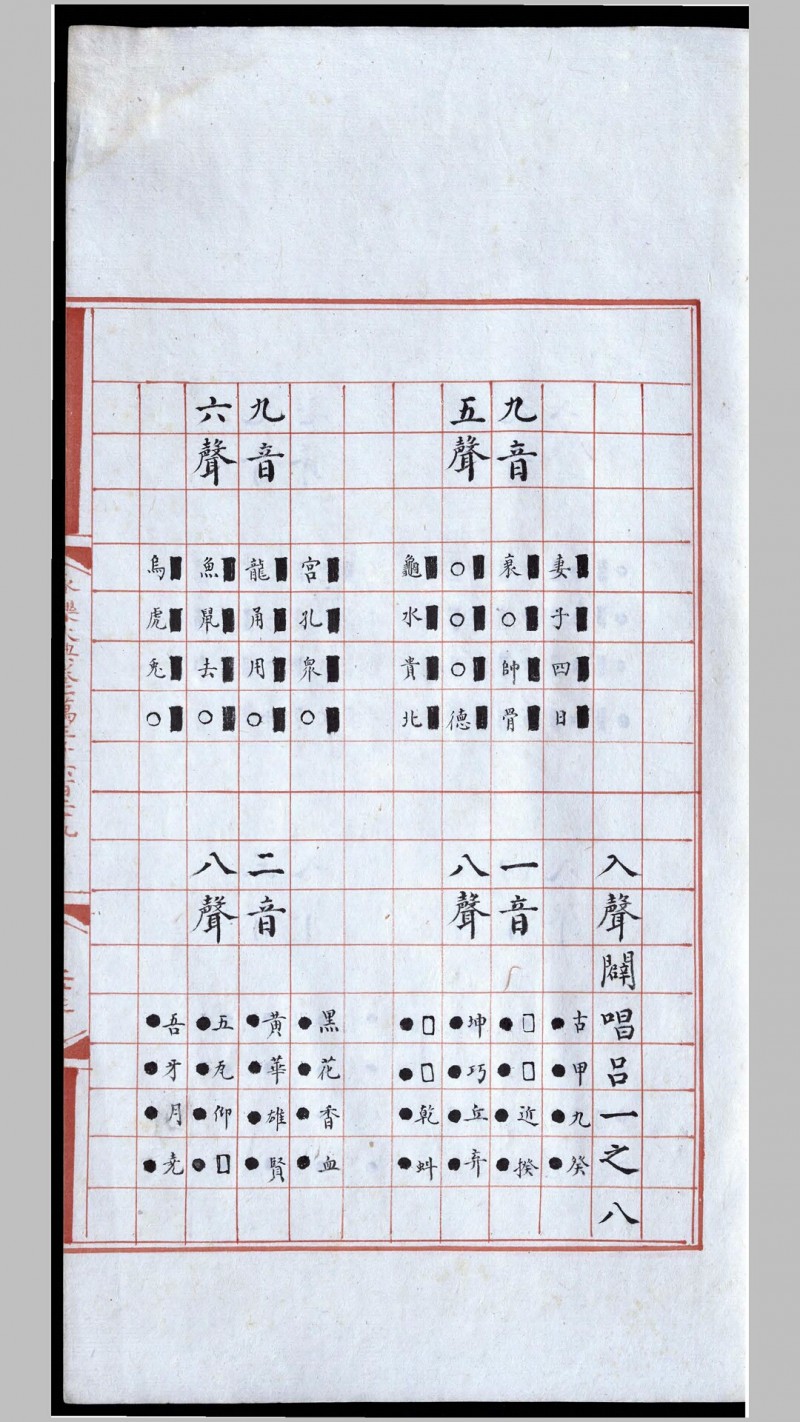 九音
五聲
妻▮子▮四▮日▮
衰▮○▮帥▮骨▮
○▮○▮○▮德▮
龜▮水▮貴▮北▮
九音
六聲
宮▮孔▮衆▮○▮
龍▮甬▮用▮○▮
魚▮鼠▮去▮○▮
烏▮虎▮兔▮○▮
入聲闢唱呂一之八
一音
八聲
●古●甲●九●癸
●□●□●近●揆
●坤●巧●丘●弃
●□●□●乾●蚪
二音
八聲
●黑●花●香●血
●黃●華●雄●賢
●五●瓦●仰●□
●吾●牙●月●堯